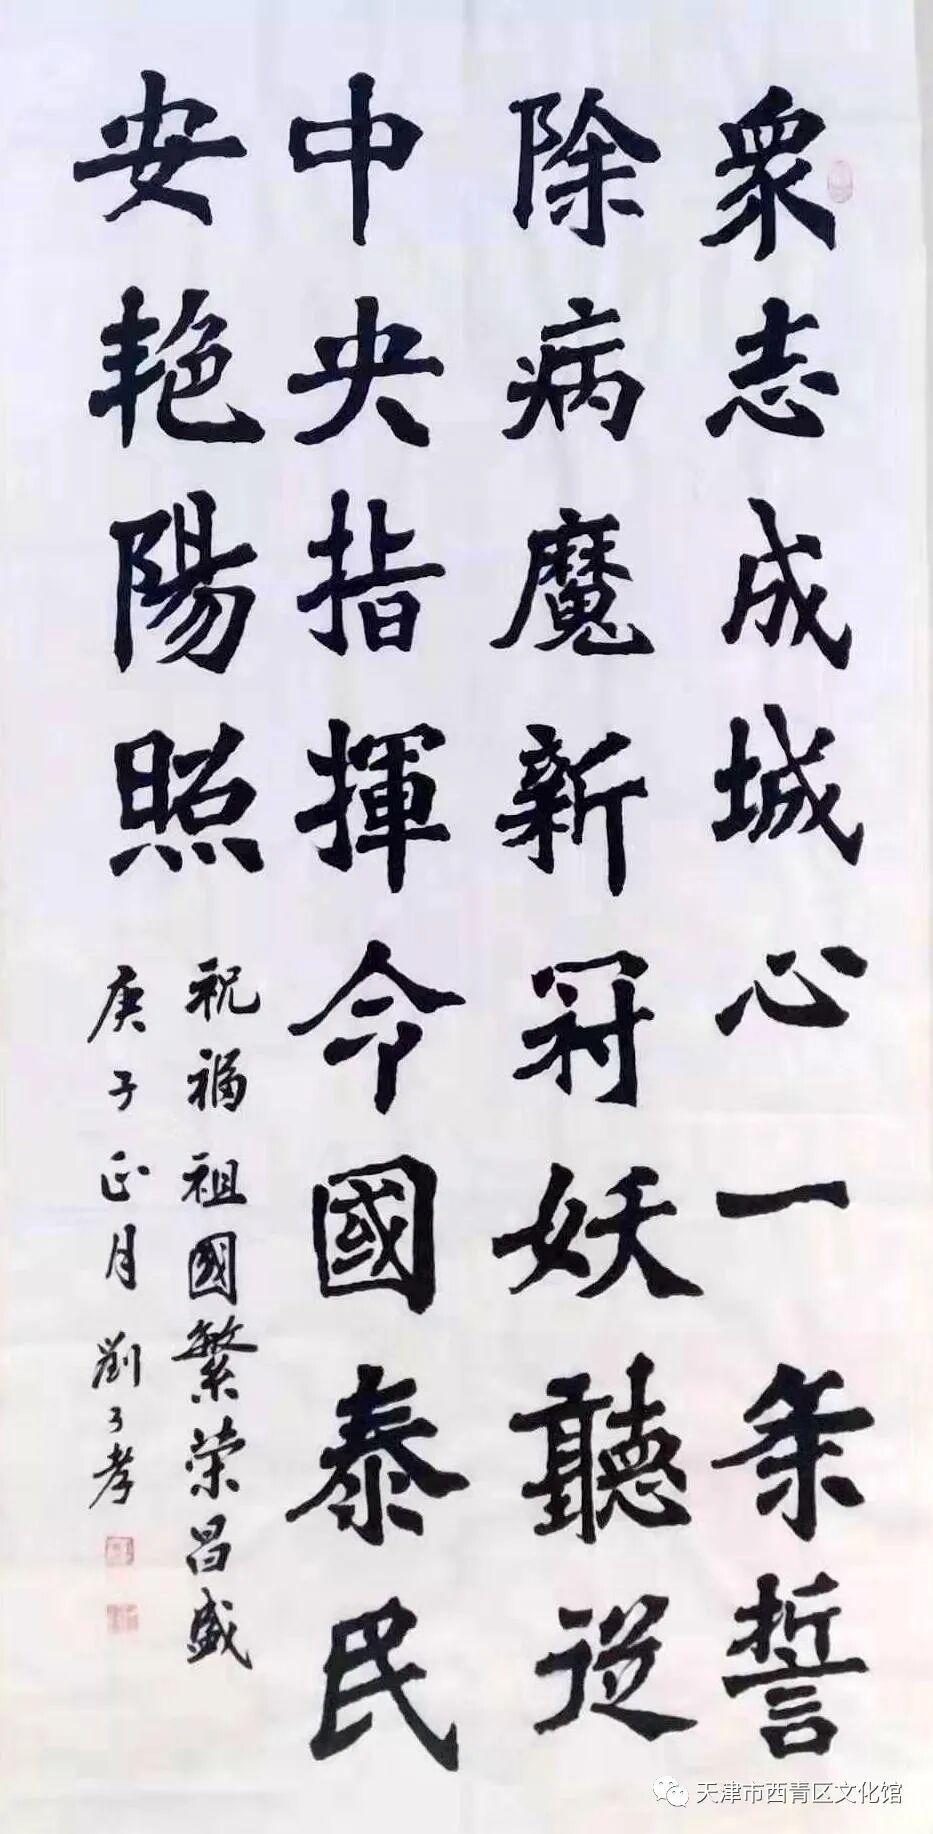 衆志成城心一条誓
除病魔新冠妖聽從
中央指揮令國泰民
安艳陽照
祝福祖國繁荣昌盛
庚子正月劉子孝
天津市西青区文化馆